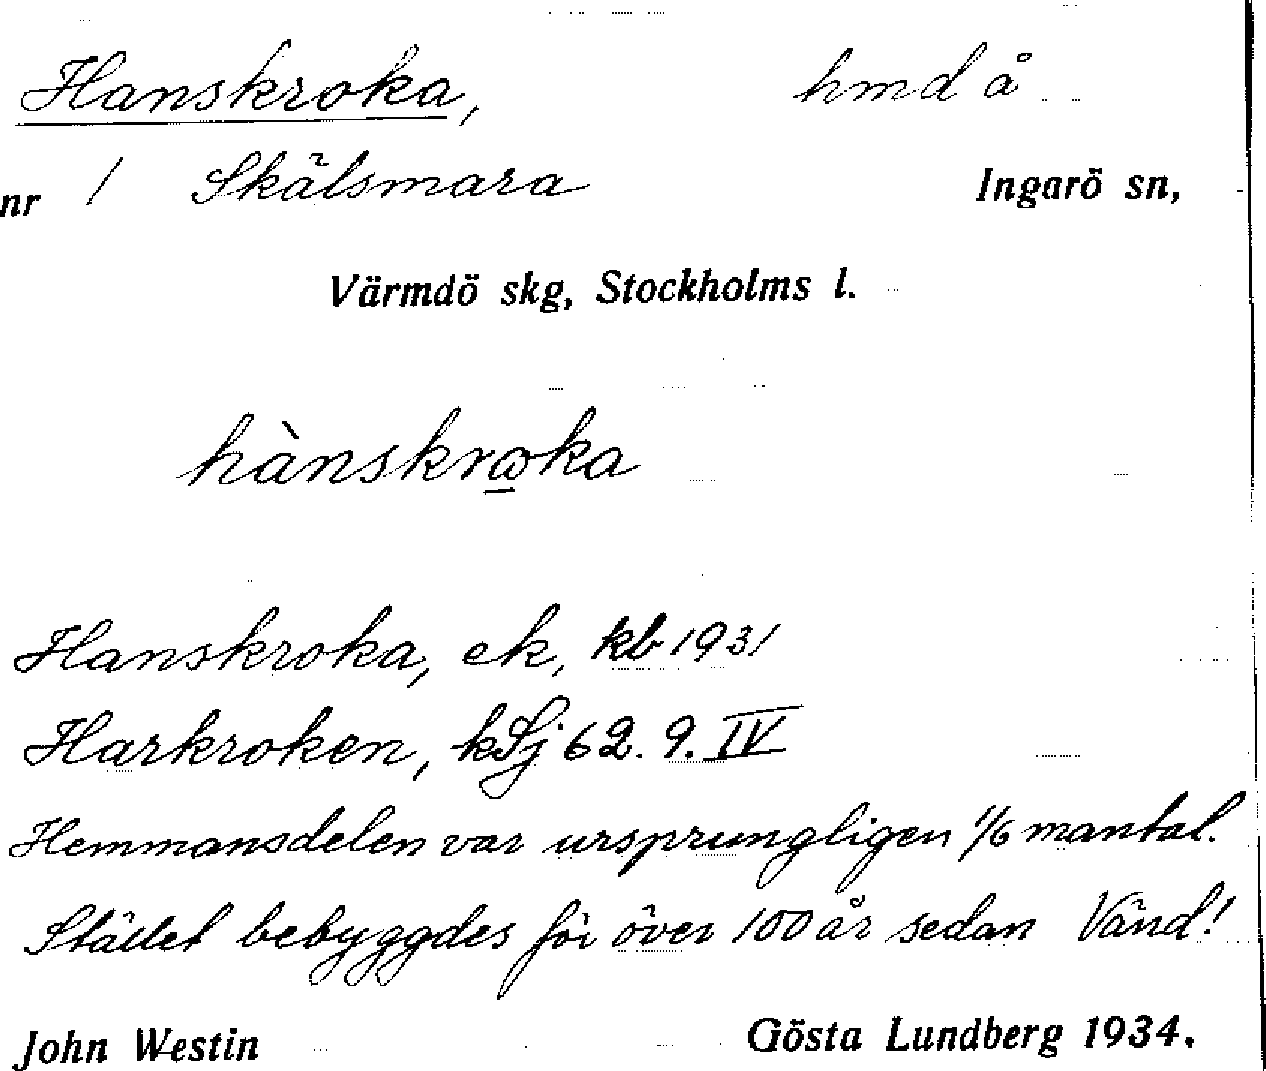 Hanskroka, hmd å
nr 1 Skälsmara Ingarö sn,
Värmdö skg, Stockholms l.
hànskrω̱ka
Hanskroka, ek, kb 1931
Harkroken, kSj 62. 9. IV
Hemmansdelen var ursprungligen 1/6 mantal.
Stället bebyggdes för över 100 år sedan Vänd!
John Westin Gösta Lundberg 1934.